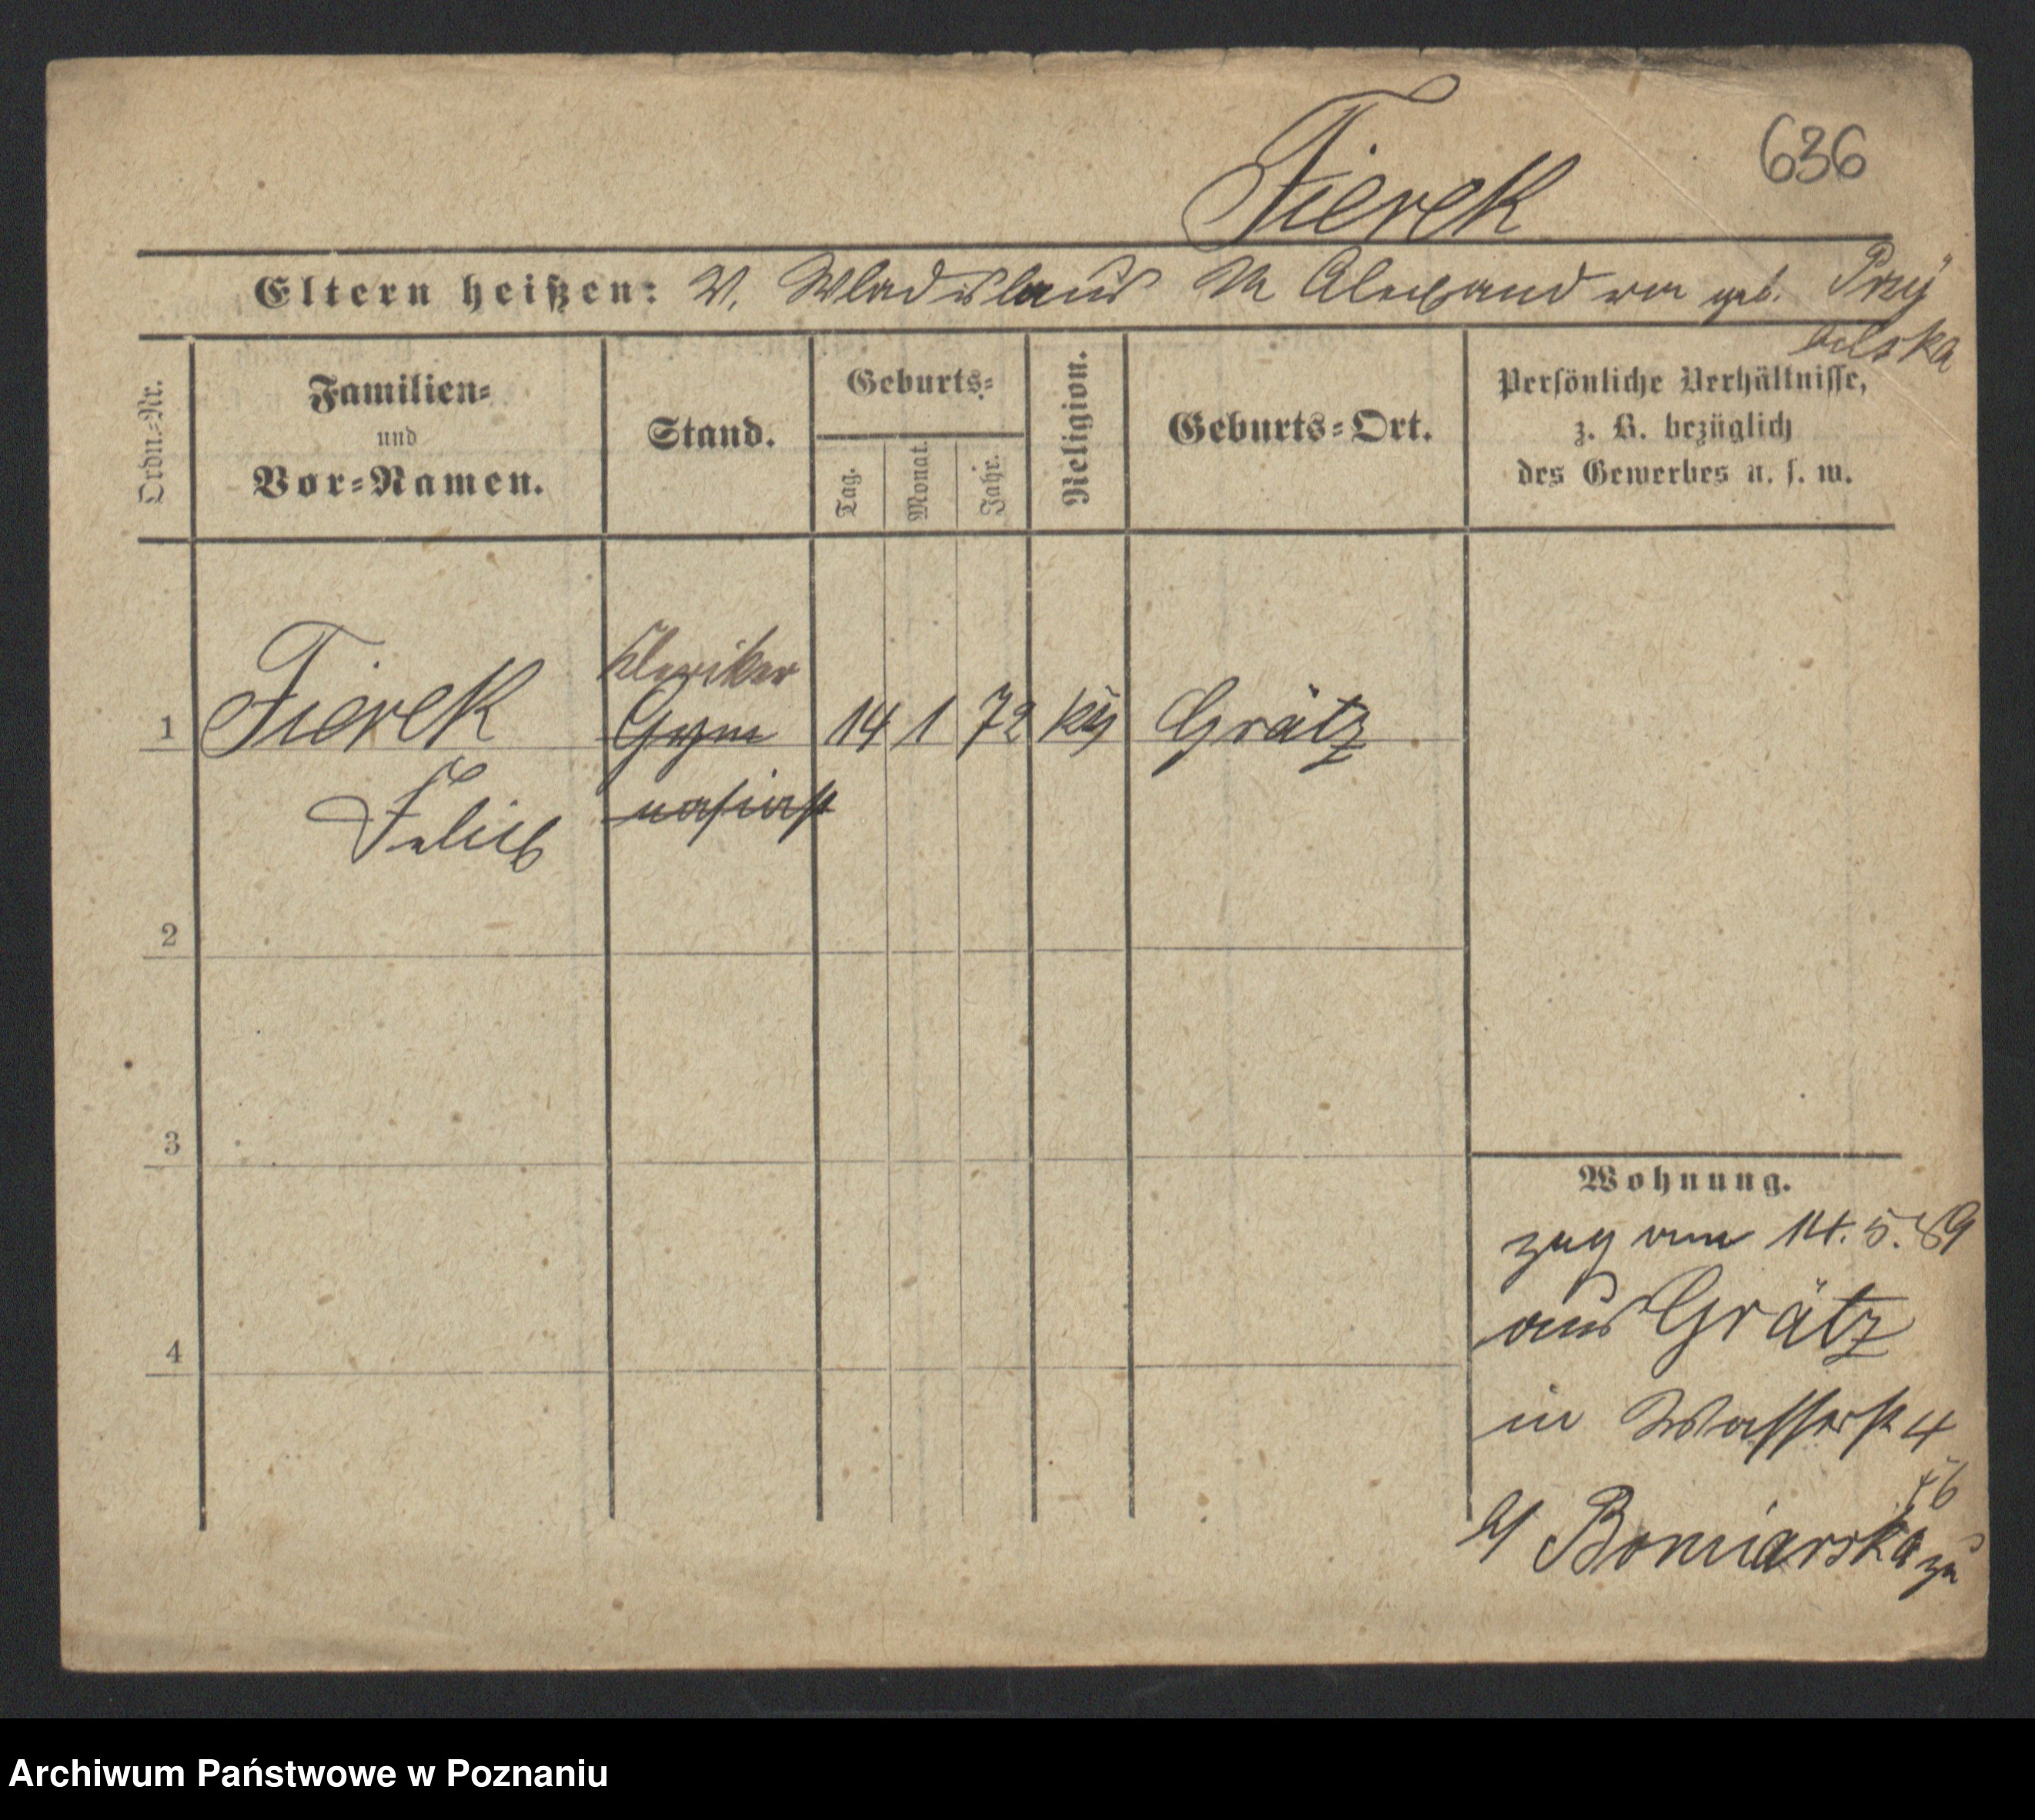 636
Fierek
Eltern heißen: V. Wladislaus M Alexandra geb. Przy
bilska
Ordn.-Nr.
Familien-
und
Vor-Namen.
Stand.
Geburts-
Tag.
Monat.
Jahr.
Religion.
Geburts-Ort.
Persönliche Verhältnisse,
z. B. bezüglich
des Gewerbes u. s. w.
Kleriker
1 Fierek Gym 14 1 72 Grätz
Felix nasiast
2
3
4
Wohnung.
zug vom 14.5.89
aus Grätz
in Wasserst 4
b/ Bomiarska
Archiwum Państwowe w Poznaniu